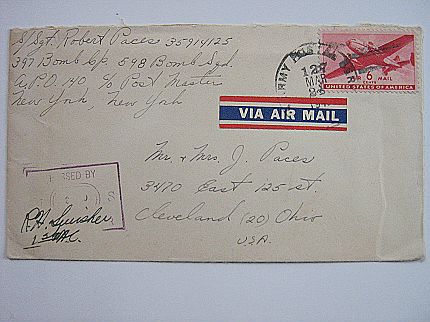 S/Sgt. Robert Paces 35914125
397 Bomb Gp. 598 Bomb Sqd.
A.P.O. 140 c/o Post Master
New York, New York
ARMY POSTAL
128
MAR
24
6
CENTS
AIR MAIL
UNITED STATES OF AMERICA
VIA AIR MAIL
Mr. & Mrs. J. Paces
3470 East 125 st.
Cleveland (20) Ohio
U.S.A.
PASSED BY
S
R.H. Swisher
1st Lt. A.C.